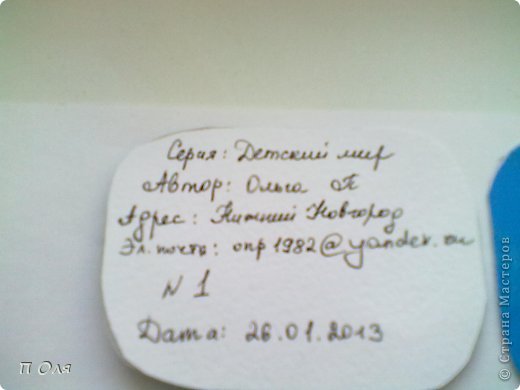 Серия: Детский мир
Автор: Ольга П
Адрес: Нижний Новгород
Эл. почта: опр1982@yandex.ru
N 1
Дата: 26.01.2013
П Оля
© Страна Мастеров